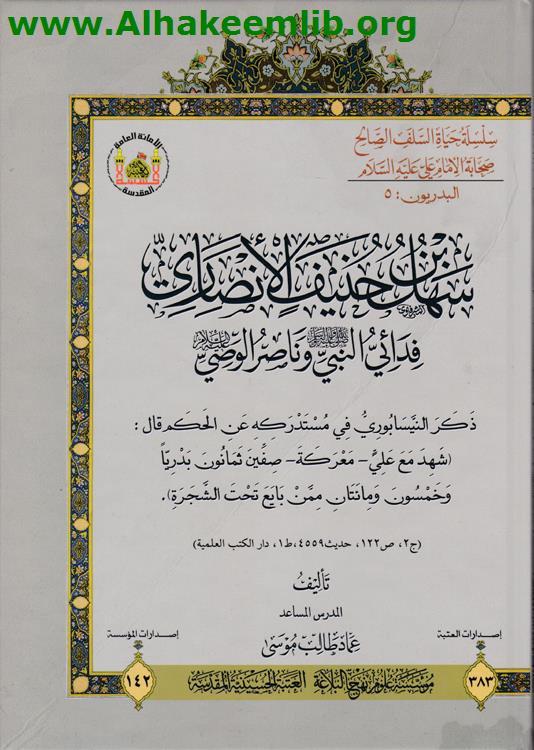 www.Alhakeemlib.org
الأمانة العامة
المقدسة
سلسلة حياة السلف الصالح
صحابة الإمام علي عليه السلام
البدريون: ٥
سهل بن حنيف الأنصاري
فدائي النبي وناصر الوصي
ذكر النيسابوري في مستدركه عن الحكم قال:
(شهد مع علي - معركة - صفين ثمانون بدرياً
وخمسون ومائتان ممن بايع تحت الشجرة).
(ج٢، ص١٢٢، حديث٤٥٥٩، ط١، دار الكتب العلمية)
تأليف
المدرس المساعد
عماد طالب موسى
إصدارات العتبة
٣٨٣
إصدارات المؤسسة
١٤٢
مؤسسة علوم نهج البلاغة العتبة الحسينية المقدسة